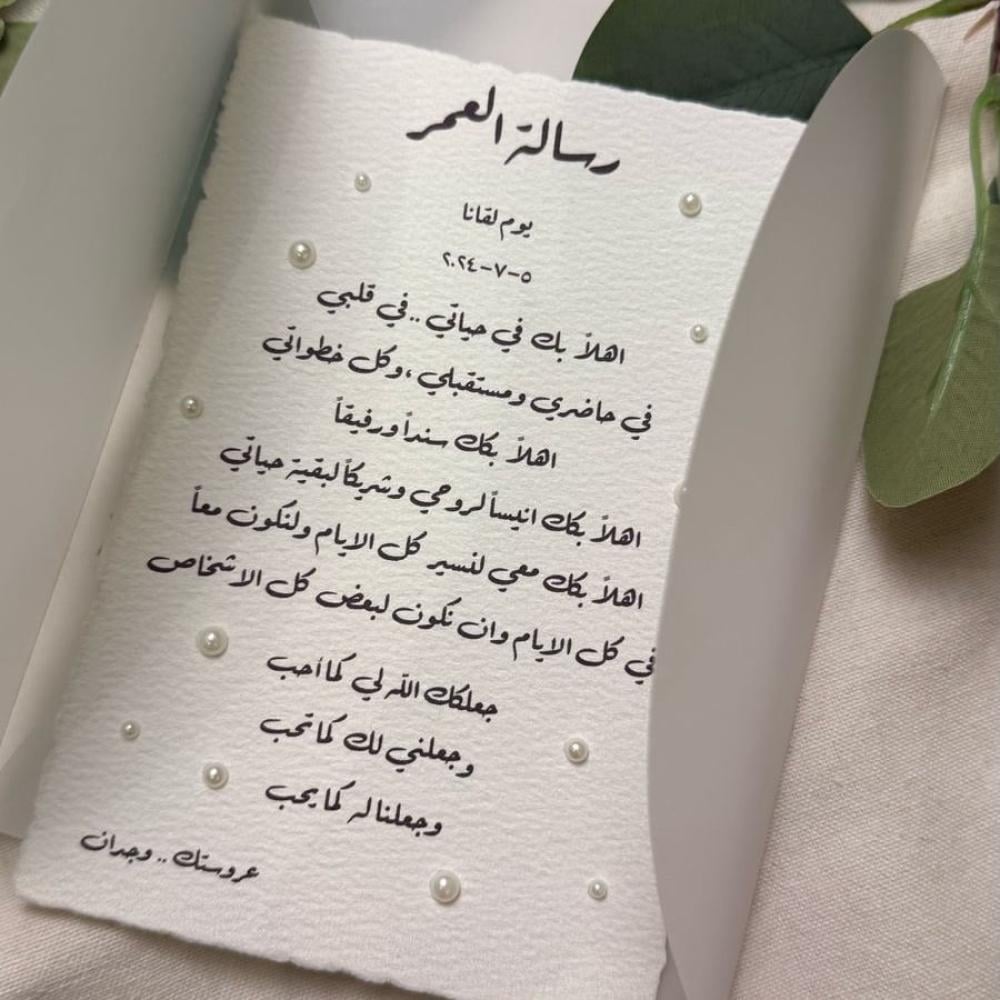 رسالة العمر
يوم لقانا
٥-٧-٢٠٢٤
اهلاً بك في حياتي .. في قلبي
في حاضري ومستقبلي ، وكل خطواتي
اهلاً بك سنداً ورفيقاً
اهلاً بك انيساً لروحي وشريكاً لبقية حياتي
اهلاً بك معي لنسير كل الايام ولنكون معاً
في كل الايام وان نكون لبعض كل الاشخاص
جعلك الله لي كما أحب
وجعلني لك كما تحب
وجعلنا له كما يحب
عروستك .. وجدان